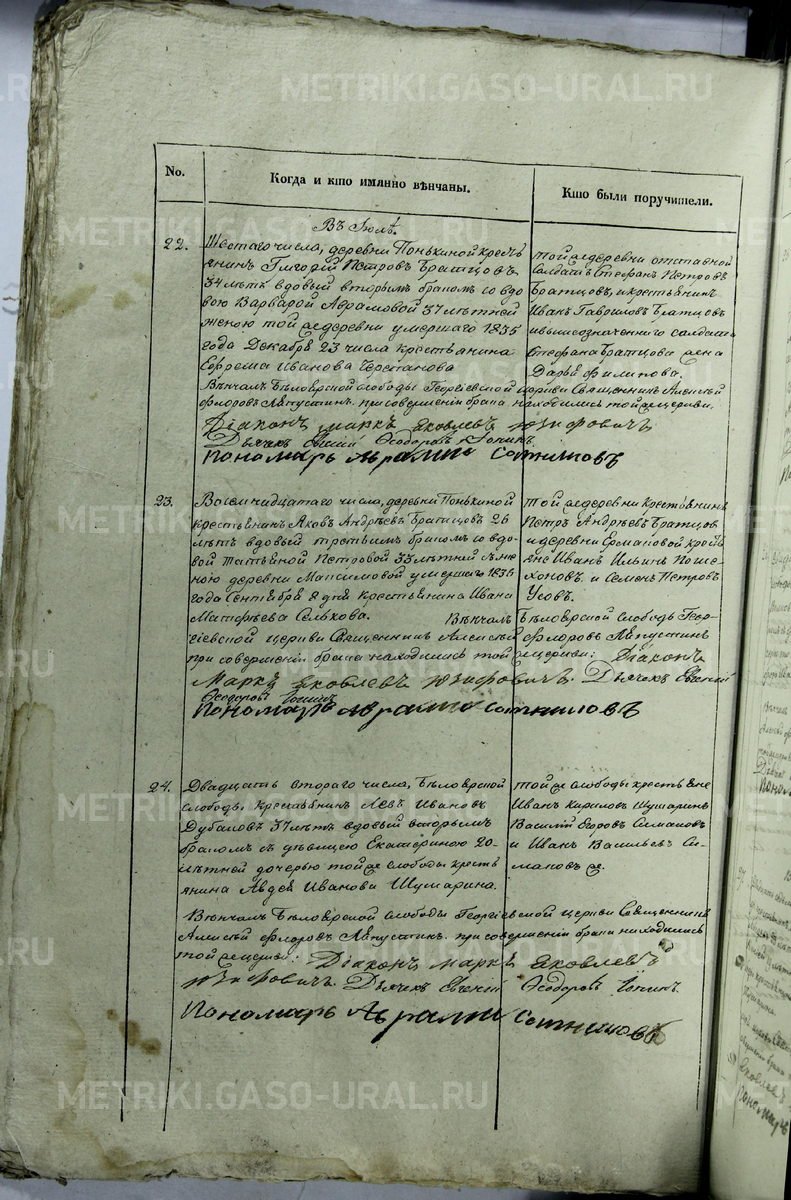 METRIKI.GASO-URAL.RU
No.
Когда и кто имянно вѣнчаны.
Кто были поручители.
Въ Іюлѣ.
22.
Шестаго числа, деревни Понькиной кресть
янинъ Григорій Петровъ Братцовъ
34 лѣтъ вдовый вторымъ бракомъ со вдо
вою Варварой Аврамовой 37 лѣтней
женою той же деревни умершаго 1835
года Декабря 23 числа крестьянина
Ефрема Иванова Черепанова
Вѣнчалъ Бѣлоярской слободы Георгіевской церкви Священникъ Алексѣй
Флоровъ при совершеніи брака находились той же церкви.
Діаконъ Маркъ Яковлевъ
Дьячекъ Евгеній Ѳеодоровъ
Пономарь Аврамій Сотниковъ
той же деревни отставной
Солдатъ Стефанъ Петровъ
Братцовъ, и крестьянинъ
Иванъ Гавриловъ Братцовъ
и вышеозначеннаго солдата
Стефана Братцова жена
Дарья Филипова.
23.
Восемнадцатаго числа, деревни Понькиной
крестьянинъ Яковъ Андрѣевъ Братцовъ 26
лѣтъ вдовый третьимъ бракомъ со вдо-
вой Татьяной Петровой 33 лѣтней же
ною деревни Максимовой умершаго 1835
года Сентября 8 дня крестьянина Ивана
Матфѣева
Вѣнчалъ Бѣлоярской слободы Геор-
гіевской церкви Священникъ Алексѣй Флоровъ
при совершеніи брака находились той же церкви: Діаконъ
Маркъ Яковлевъ Дьячекъ Евгеній
Ѳеодоровъ
Пономарь Аврамій Сотниковъ
той же деревни Крестьянинъ
Петръ Андрѣевъ Братцов
и деревни Ермаковой кресть
яне Иванъ Ильинъ Поше-
хоновъ и Семенъ Петровъ
Усовъ.
24.
Двадцать втораго числа, Бѣлоярской
слободы, крестьянинъ Левъ Ивановъ
37 лѣтъ вдовый вторымъ
бракомъ съ дѣвицею Екатериною 20-
лѣтней дочерью той же слободы кресть
янина Авдея Иванова Шумарина.
Вѣнчалъ Бѣлоярской слободы Георгіевской церкви Священникъ
Алексѣй Флоровъ при совершеніи брака находились
той же церкви: Діаконъ Маркъ Яковлевъ
Дьячекъ Евгеній Ѳеодоровъ
Пономарь Аврамій Сотниковъ
той же слободы крестьяне
Иванъ Кириловъ Шумаринъ
Василій Егоровъ Симаковъ
и Иванъ Васильевъ Си-
маковъ же.